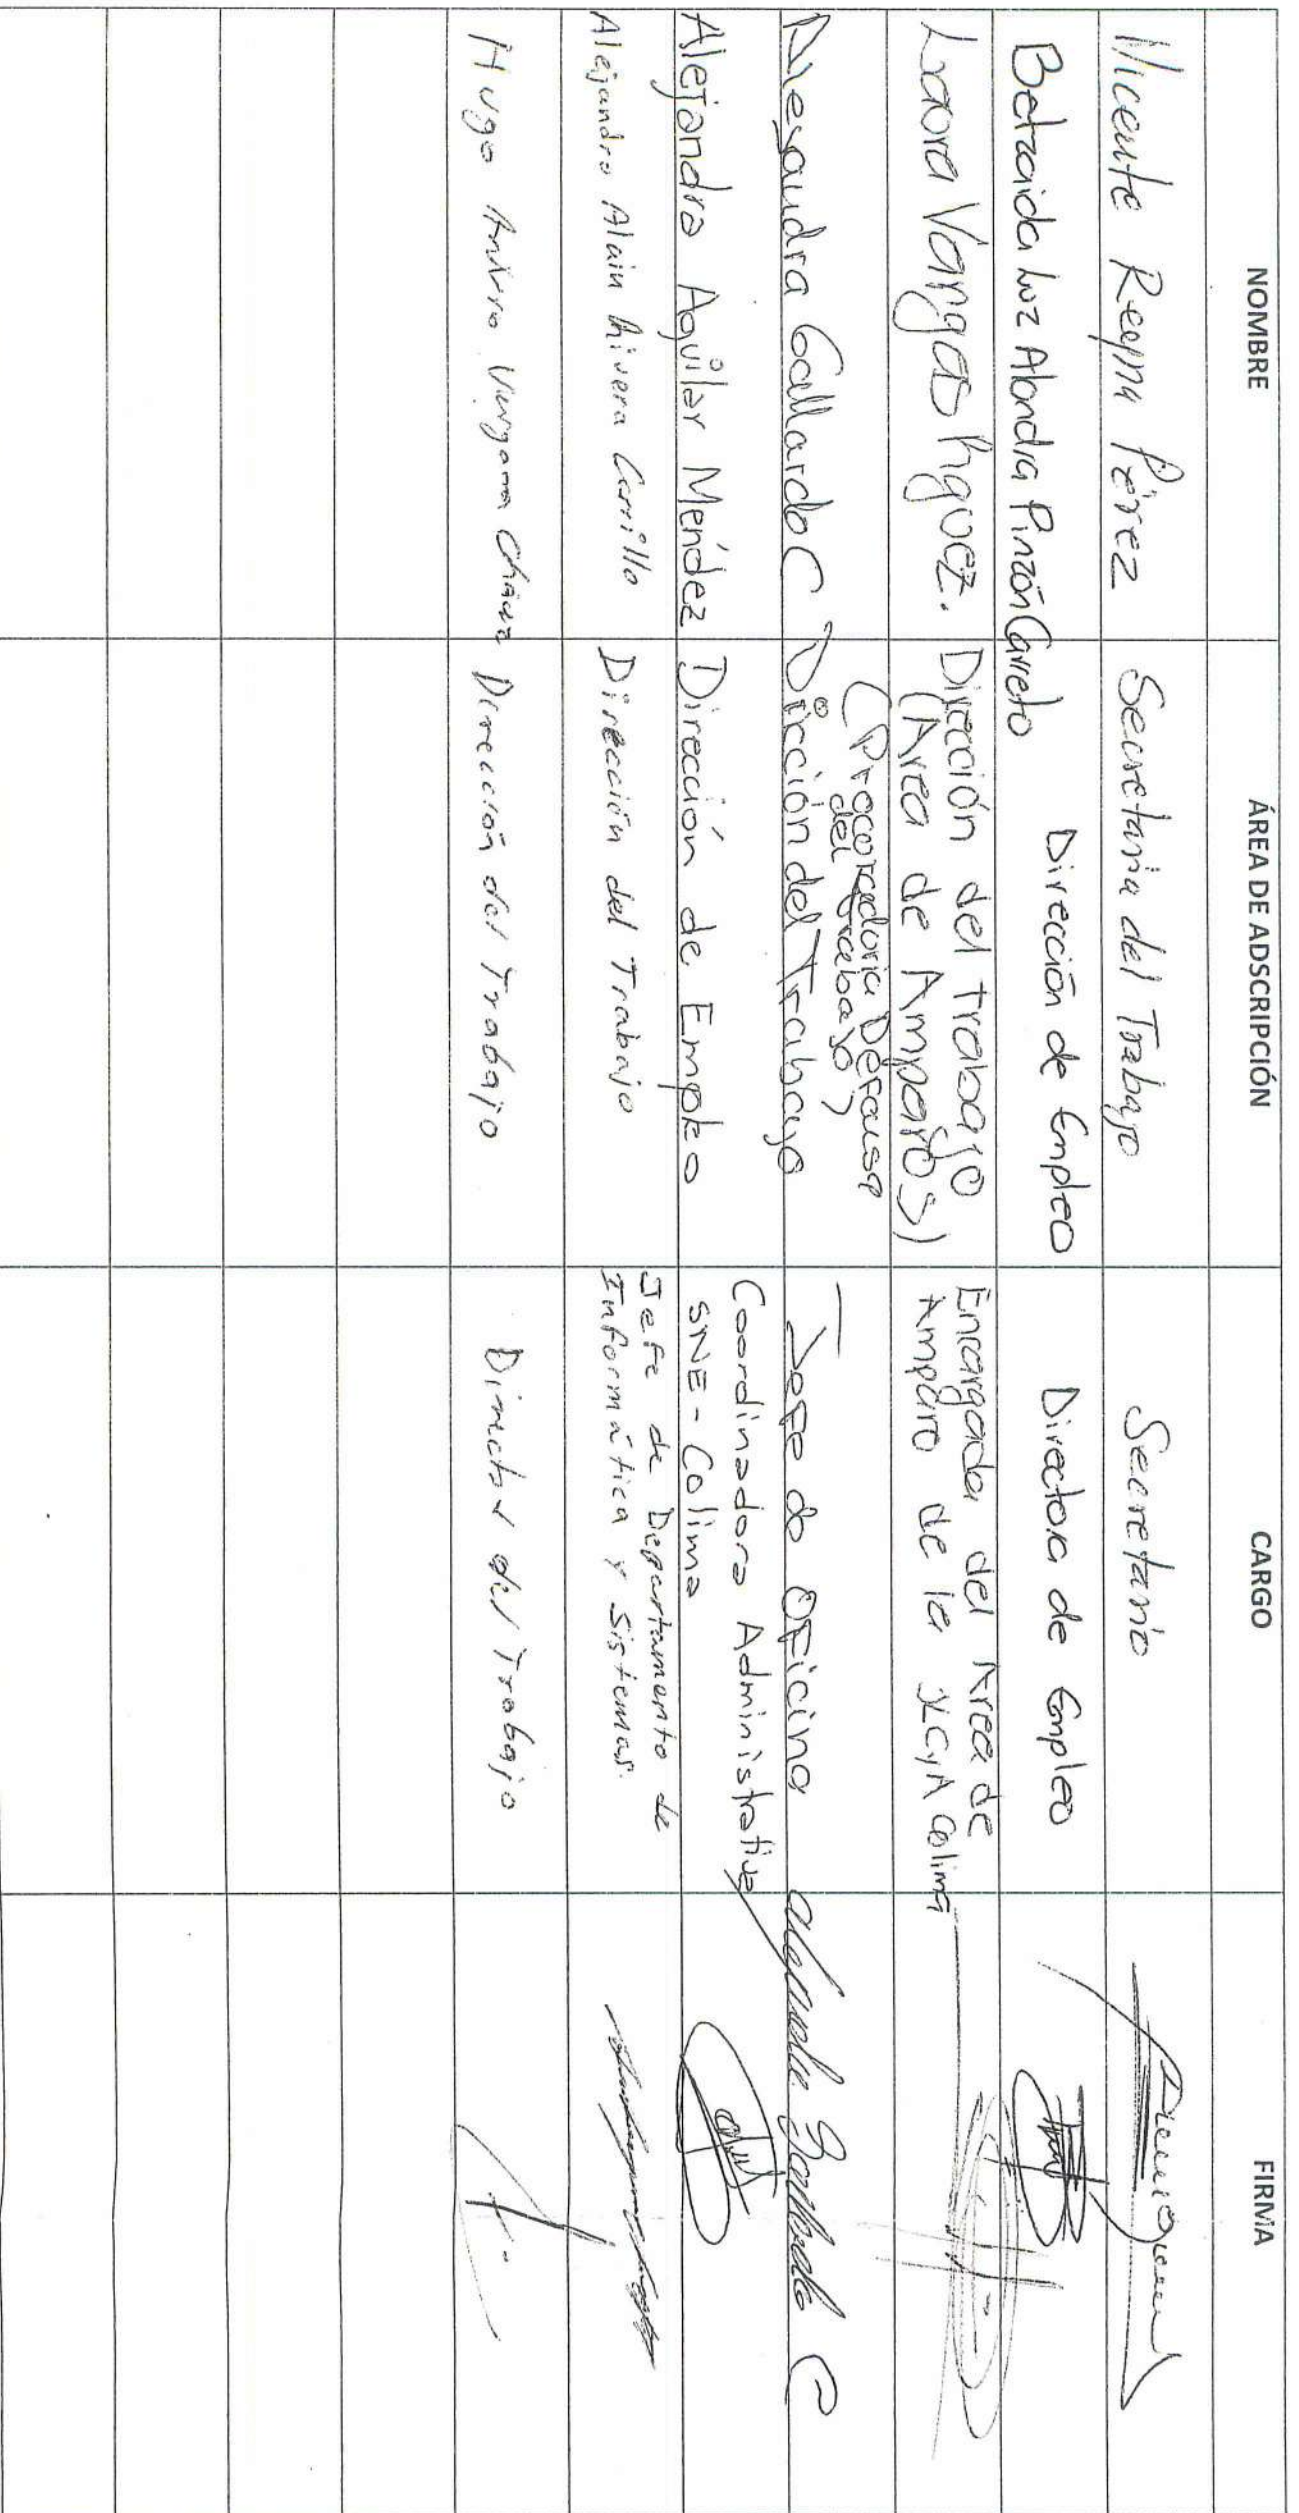 NOMBRE ÁREA DE ADSCRIPCIÓN CARGO FIRMA
Vicente Reyna Pérez Secretaria del Trabajo Secretario
Betzaida Luz Alondra Pinzón Carreto Dirección de Empleo Directora de Empleo
Laora Vargas Rguez. Dirección del trabajo Encargada del Area de
(Area de Amparos) Amparo de la JLCyA Colima
(Procuraduria Defensa
del trabajo)
Alejandra Gallardo C Dirección del Trabajo Jefe de Oficina Alejandra Gallardo C
Alejandra Aguilar Méndez Dirección de Empleo Coordinadora Administrativa
SNE - Colima
Alejandro Alain Rivera Carrillo Dirección del Trabajo Jefe de Departamento de
Informática y Sistemas.
Hugo Vergara Dirección del Trabajo Director del Trabajo